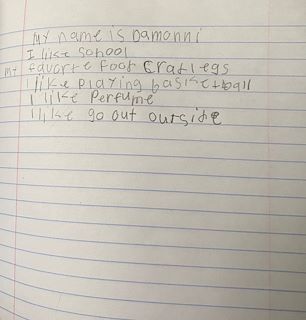 My name is Damonni
I like school
my favorte foot Cratlegs
I like playing basketball
I like Perfume
I like go out outside